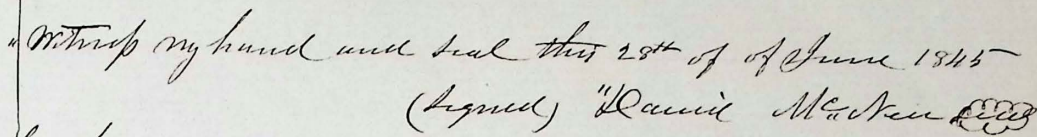 "Witness my hand and seal this 28th of of June 1845
(Signed) "Daniel McNeill seal